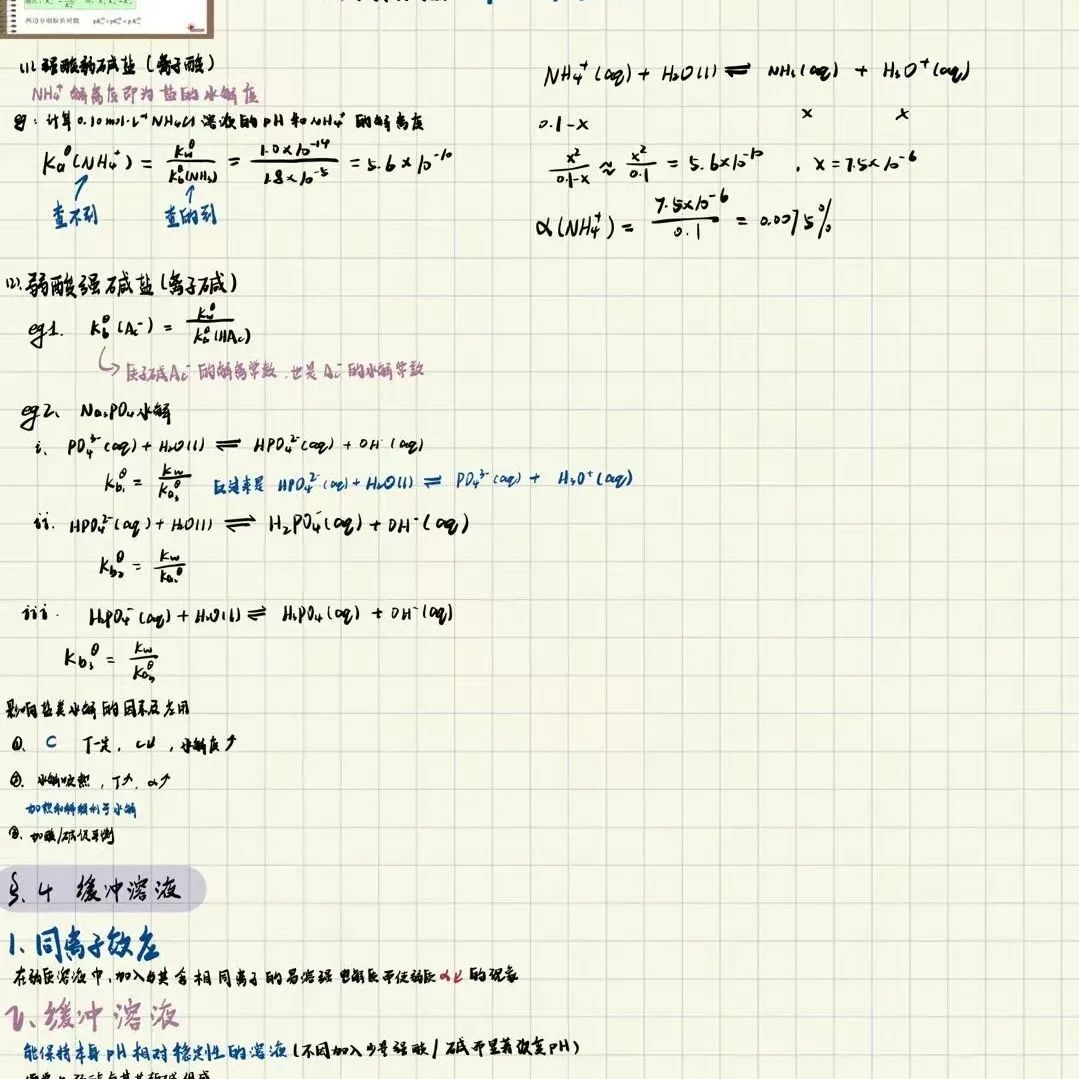 两边分别取负对数 pKₐ^θ+pK_b^θ=pK_w^θ
(1) 强酸弱碱盐(离子酸)
NH₄⁺解离度即为盐的水解度
例:计算0.10mol·L⁻¹NH₄Cl溶液的pH和NH₄⁺的解离度
Kₐ^θ(NH₄⁺) = K_w^θ/K_b^θ(NH₃) = 1.0×10⁻¹⁴/1.8×10⁻⁵ = 5.6×10⁻¹⁰
查不到 查的到
NH₄⁺(aq) + H₂O(l) ⇌ NH₃(aq) + H₃O⁺(aq)
0.1-x x x
x²/0.1-x ≈ x²/0.1 = 5.6×10⁻¹⁰ , x = 7.5×10⁻⁶
α(NH₄⁺) = 7.5×10⁻⁶/0.1 = 0.0075%
(2) 弱酸强碱盐(离子碱)
eg1. K_b^θ(Ac⁻) = K_w^θ/Kₐ^θ(HAc)
质子碱Ac⁻的解离常数,也是Ac⁻的水解常数
eg2、 Na₃PO₄水解
i、 PO₄³⁻(aq) + H₂O(l) ⇌ HPO₄²⁻(aq) + OH⁻(aq)
K_b₁^θ = K_w/K_a₃^θ 反过来是 HPO₄²⁻(aq) + H₂O(l) ⇌ PO₄³⁻(aq) + H₃O⁺(aq)
ii. HPO₄²⁻(aq) + H₂O(l) ⇌ H₂PO₄⁻(aq) + OH⁻(aq)
K_b₂^θ = K_w/
iii. H₂PO₄⁻(aq) + H₂O(l) ⇌ H₃PO₄(aq) + OH⁻(aq)
K_b₃^θ = K_w/
影响盐类水解的因素及应用
①、 C T一定, c↓ , 水解度↗
②. 水解吸热, T↗, α↗
加热和稀释利于水解
③、加酸/碱
§.4 缓冲溶液
1、同离子效应
在弱质溶液中,加入与其含相同离子的易溶强电解质而使弱质α↓的现象
2、缓冲溶液
能保持本身pH相对稳定性的溶液(不因加入少量强酸/碱而显著改变pH)